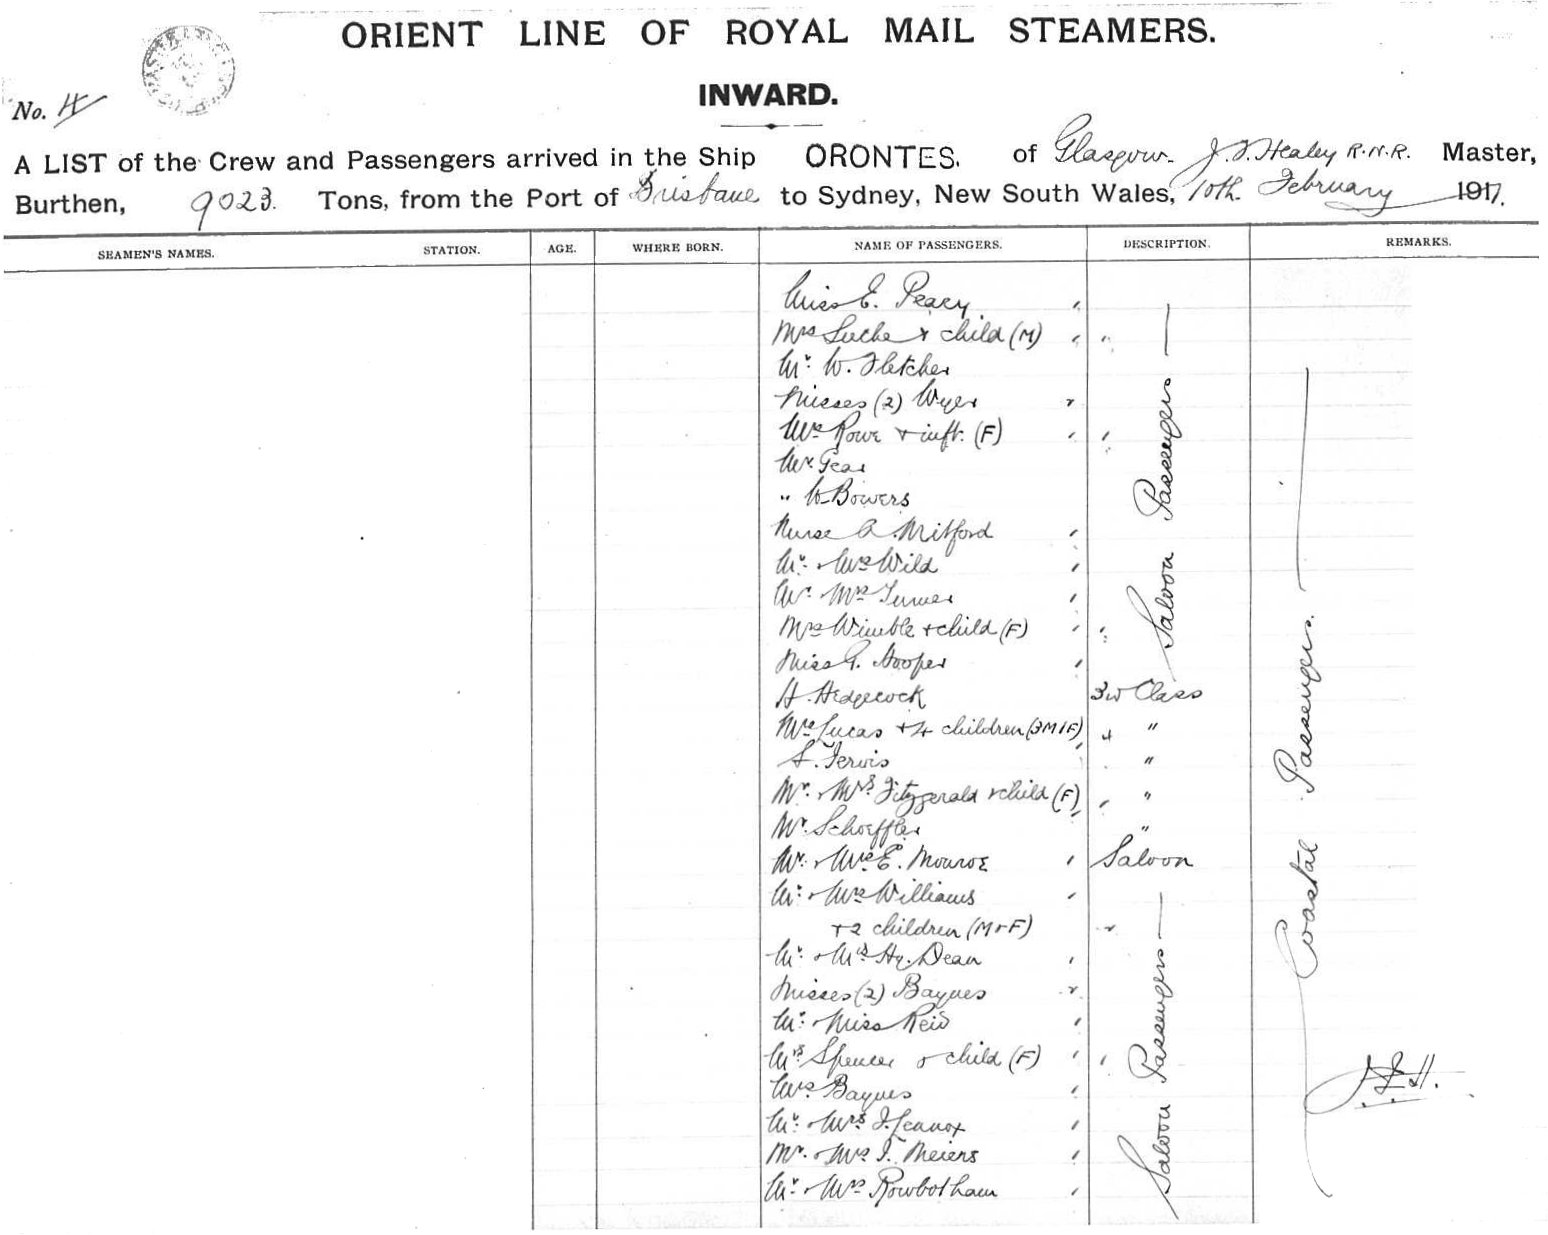 ORIENT LINE OF ROYAL MAIL STEAMERS.
INWARD.
No. 4
A LIST of the Crew and Passengers arrived in the Ship ORONTES. of Glasgow. J.F. Healey R.N.R. Master,
Burthen, 9023. Tons, from the Port of Brisbane to Sydney, New South Wales, 10th. February 1917.
SEAMEN'S NAMES. STATION. AGE. WHERE BORN. NAME OF PASSENGERS. DESCRIPTION. REMARKS.
Miss E. Peacy
Mrs & child (M)
Mr. W. Fletcher
Misses (2) Wyer
Mrs Rowe & inft. (F)
Mr. Gear
" W Bowers
Nurse A. Mitford
Mr. & Mrs Wild
Mr. Mrs Turner
Mrs Wimble & child (F)
Miss G. Hooper
H. Hedgecock 3rd Class
Mrs Lucas & 4 children (3M1F) 4 "
S. Jervis "
Mr. & Mrs Fitzgerald & child (F) "
Mr. Schoeffler "
Mr. & Mrs E. Monroe Saloon
Mr. & Mrs Williams
& 2 children (M & F)
Mr. & Mrs Hy. Dean
Misses (2) Baynes
Mr. & Miss Reid
Mrs Spencer & child (F)
Mrs Baynes
Mr. & Mrs J. Lennox
Mr. & Mrs J. Meiers
Mr. & Mrs Rowbotham
Saloon Passengers
Saloon Passengers
Coastal Passengers.
J.F.H.